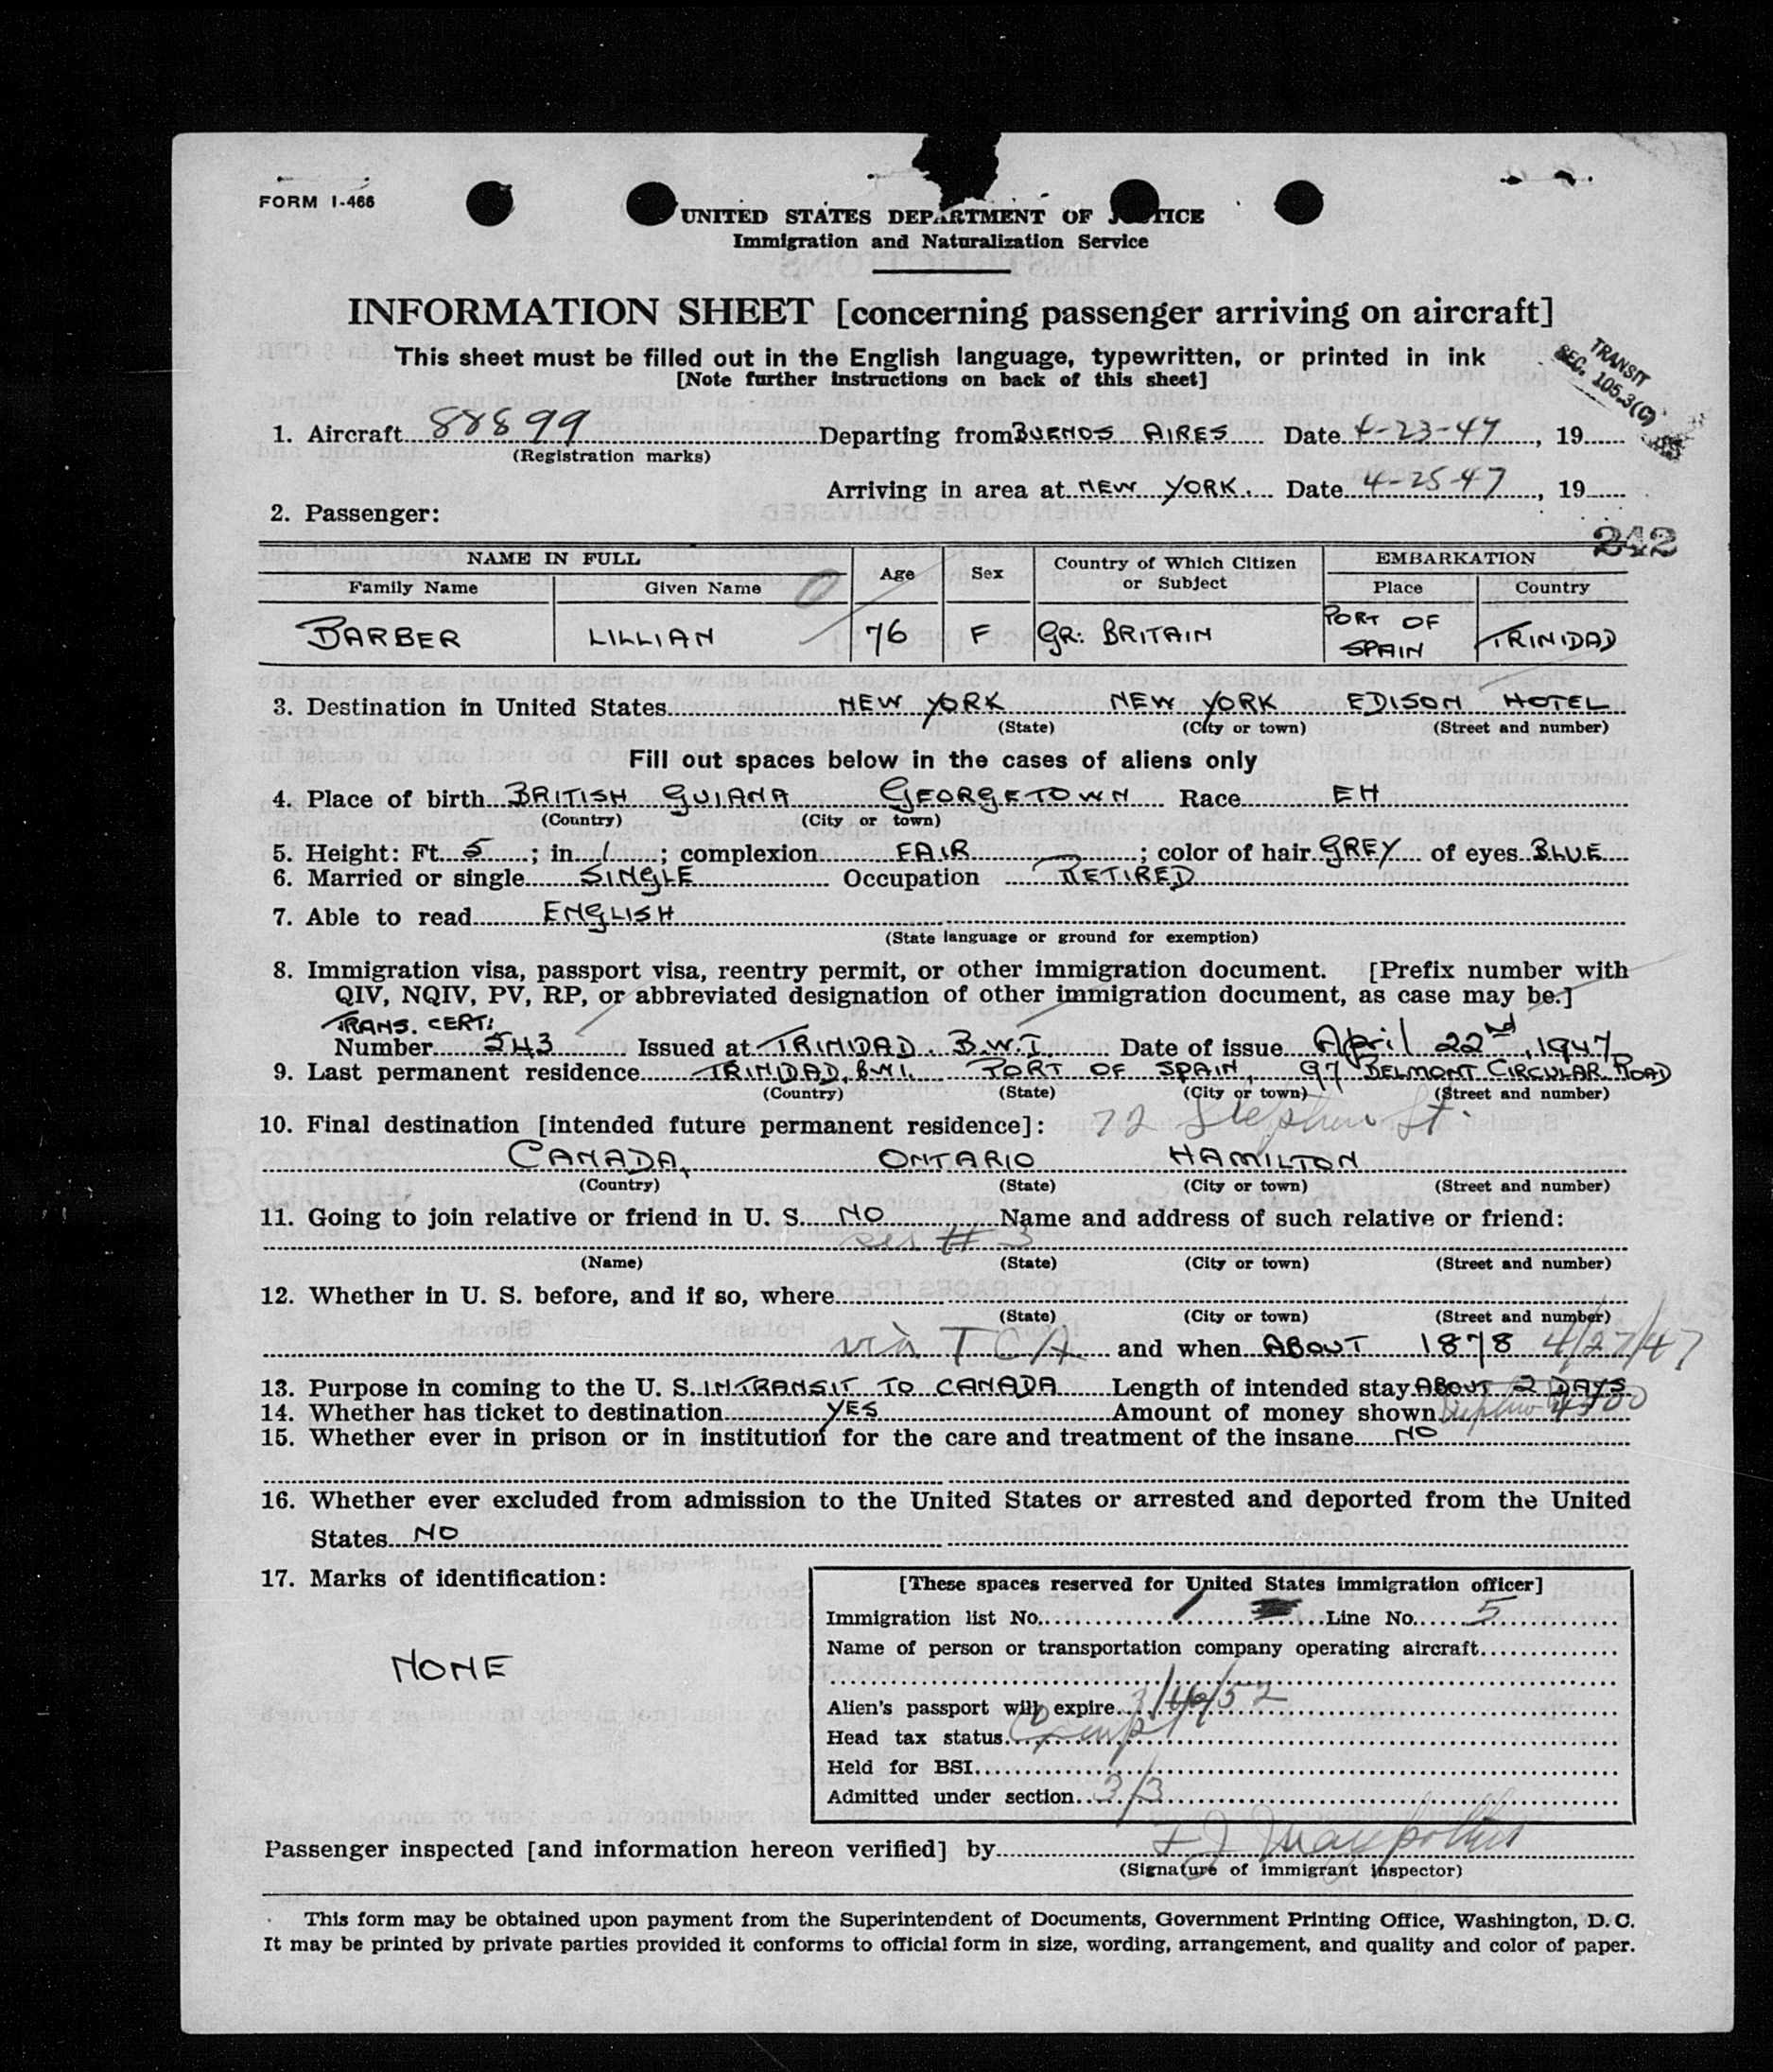 FORM I-466
UNITED STATES DEPARTMENT OF JUSTICE
Immigration and Naturalization Service
INFORMATION SHEET [concerning passenger arriving on aircraft]
This sheet must be filled out in the English language, typewritten, or printed in ink
[Note further instructions on back of this sheet]
TRANSIT
SEC. 105.3(C)
1. Aircraft 88899 Departing from BUENOS AIRES Date 4-23-47, 19
(Registration marks)
Arriving in area at NEW YORK. Date 4-25-47, 19
2. Passenger:
242
NAME IN FULL Age Sex Country of Which Citizen or Subject EMBARKATION
Family Name Given Name Place Country
BARBER LILLIAN 76 F GR: BRITAIN PORT OF SPAIN TRINIDAD
3. Destination in United States NEW YORK NEW YORK EDISON HOTEL
(State) (City or town) (Street and number)
Fill out spaces below in the cases of aliens only
4. Place of birth BRITISH GUIANA GEORGETOWN Race EH
(Country) (City or town)
5. Height: Ft. 5; in. 1; complexion FAIR; color of hair GREY of eyes BLUE
6. Married or single SINGLE Occupation RETIRED
7. Able to read ENGLISH
(State language or ground for exemption)
8. Immigration visa, passport visa, reentry permit, or other immigration document. [Prefix number with
QIV, NQIV, PV, RP, or abbreviated designation of other immigration document, as case may be.]
TRANS. CERT:
Number 543 Issued at TRINIDAD. B.W.I. Date of issue April 22nd, 1947
9. Last permanent residence TRINIDAD, B.W.I. PORT OF SPAIN, 97 BELMONT CIRCULAR ROAD
(Country) (State) (City or town) (Street and number)
10. Final destination [intended future permanent residence]: 72 Stephen St.
CANADA, ONTARIO HAMILTON
(Country) (State) (City or town) (Street and number)
11. Going to join relative or friend in U. S. NO Name and address of such relative or friend:
see # 3
(Name) (State) (City or town) (Street and number)
12. Whether in U. S. before, and if so, where
(State) (City or town) (Street and number)
via TCA and when ABOUT 1878 4/27/47
13. Purpose in coming to the U. S. INTRANSIT TO CANADA Length of intended stay ABOUT 2 DAYS
14. Whether has ticket to destination YES Amount of money shown
15. Whether ever in prison or in institution for the care and treatment of the insane NO
16. Whether ever excluded from admission to the United States or arrested and deported from the United
States NO
17. Marks of identification:
NONE
[These spaces reserved for United States immigration officer]
Immigration list No. 1 Line No. 5
Name of person or transportation company operating aircraft
Alien's passport will expire 3/16/52
Head tax status Exempt
Held for BSI
Admitted under section 3/3
Passenger inspected [and information hereon verified] by
(Signature of immigrant inspector)
This form may be obtained upon payment from the Superintendent of Documents, Government Printing Office, Washington, D. C.
It may be printed by private parties provided it conforms to official form in size, wording, arrangement, and quality and color of paper.